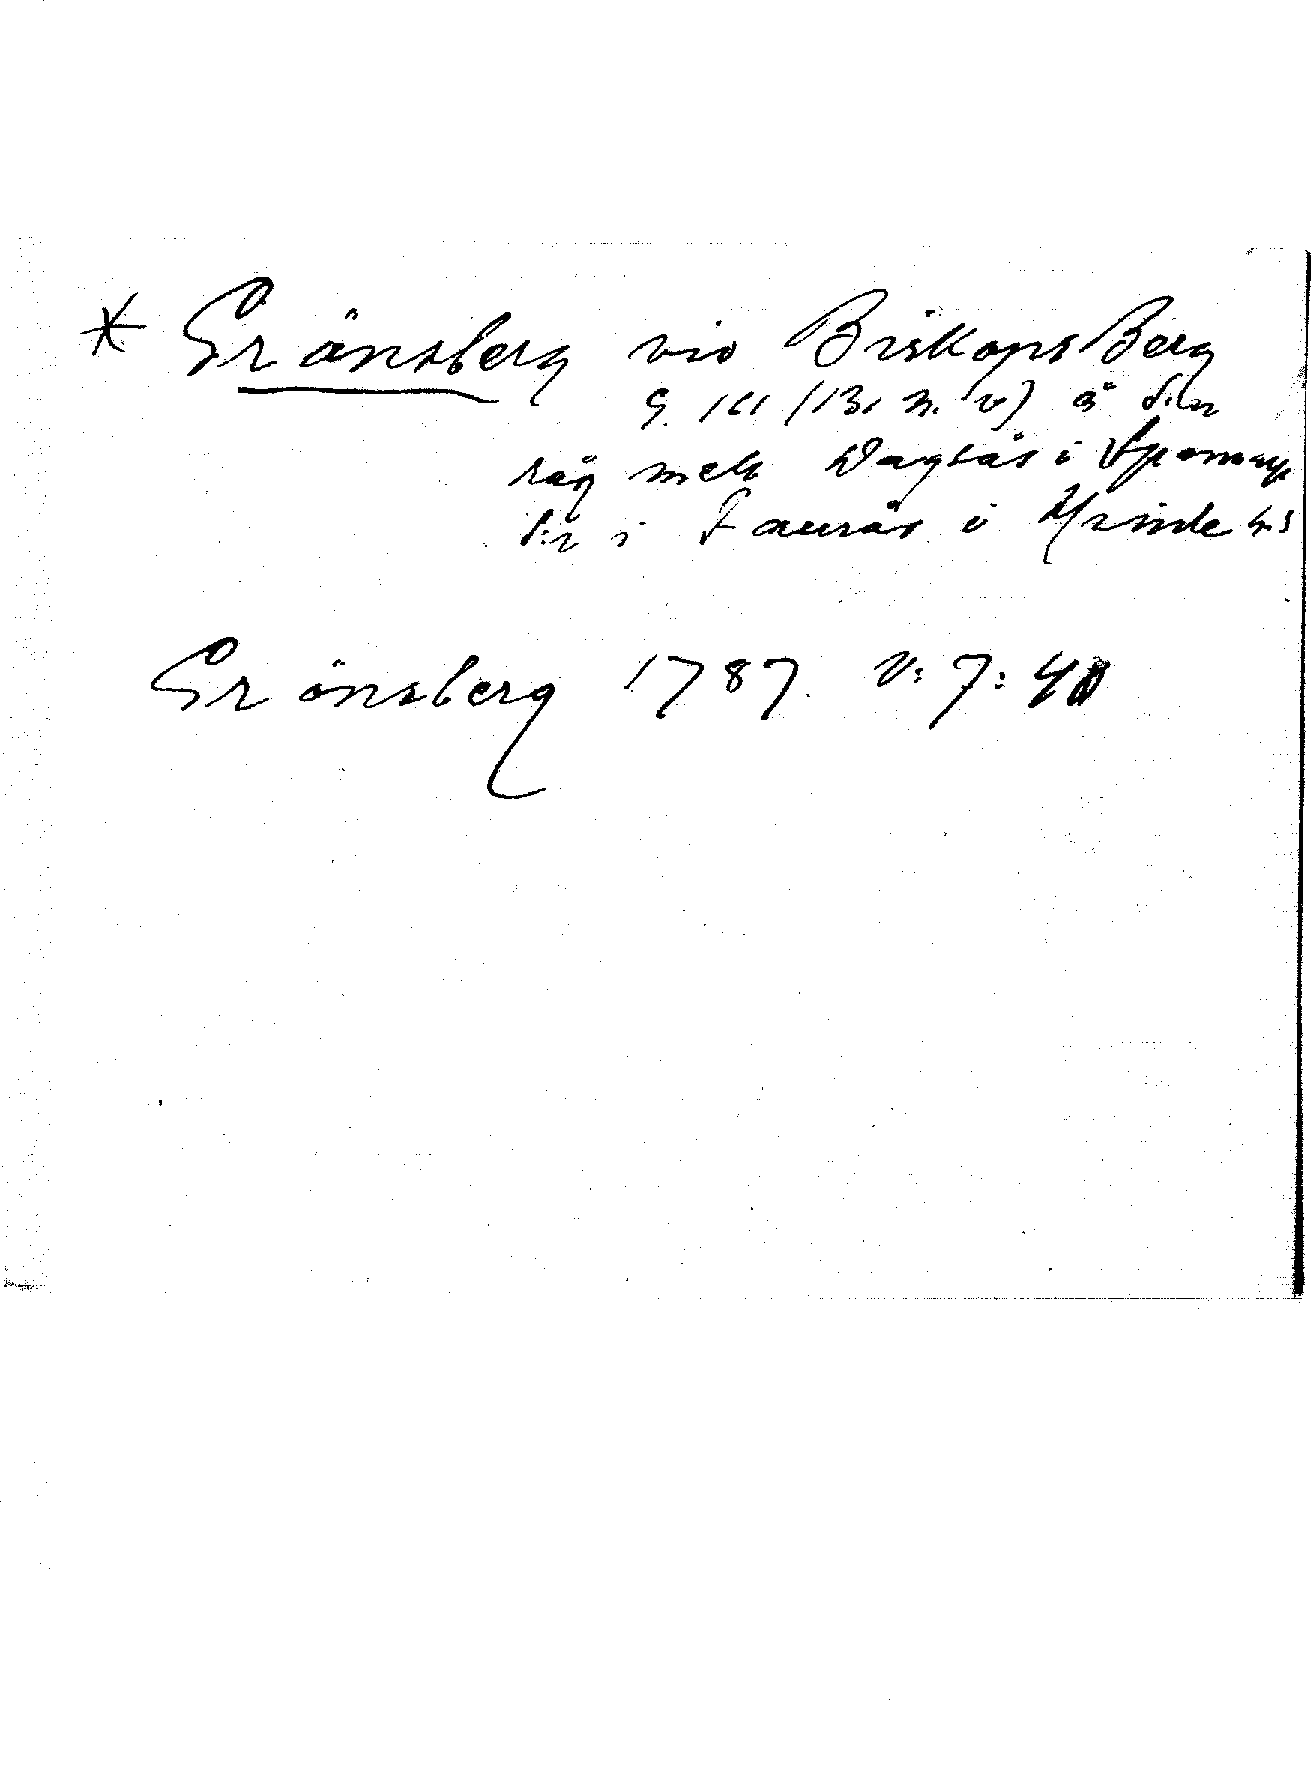 * Gränsberg vid Biskops Berg
G. 161 (131 n. v) å d:n
råg mell Dagsås i Spannarp
s:n i Faurås i Himle h:d
Gränsberg 1787. V: 7: 40